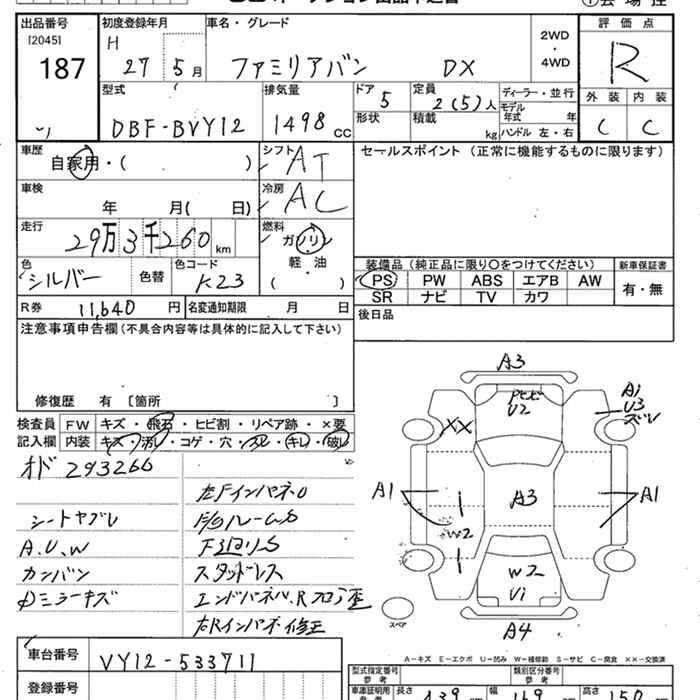 出品番号
[2045]
187
初度登録年月
H 27 5月
車名・グレード
ファミリアバン DX
2WD
・
4WD
評価点
R
外装 内装
C C
型式
DBF-BVY12
排気量
1498 cc
ドア
5
形状
定員
2(5)人
積載
kg
ディーラー・並行
モデル
年式 年
ハンドル 左・右
車歴
自家用・( )
シフト
AT
車検
年 月( 日)
冷房
AC
走行
29万3千260 km
燃料
ガソリン
軽・油
( ・ )
色
シルバー
色替
色コード
K23
R券 11,640 円
名変通知期限 月 日
セールスポイント (正常に機能するものに限ります)
装備品(純正品に限り〇をつけてください)
新車保証書
PS PW ABS エアB AW
SR ナビ TV カワ
有・無
後日品
注意事項申告欄(不具合内容等は具体的に記入して下さい)
修復歴 有 [箇所 ]
検査員 FW キズ・飛石・ヒビ割・リペア跡・×要
記入欄 内装 キズ・汚レ・コゲ・穴・スレ・キレ・破レ
オド 293266
シートヤブレ
A.U.W
カンバン
スタッドレス
エンドパネル.Rフロア歪
右Rインパネ修正
A3
U2
A1
U3
ズレ
XX
A1
A3
A1
W2
W2
U1
A4
スペア
A-キズ E-エクボ U-凹み W-補修跡 S-サビ C-腐食 ××-交換済
車台番号
VY12-533711
登録番号
型式指定番号
参考
類別区分番号
参考
車庫証明用
長さ 439 幅 169 高さ 150